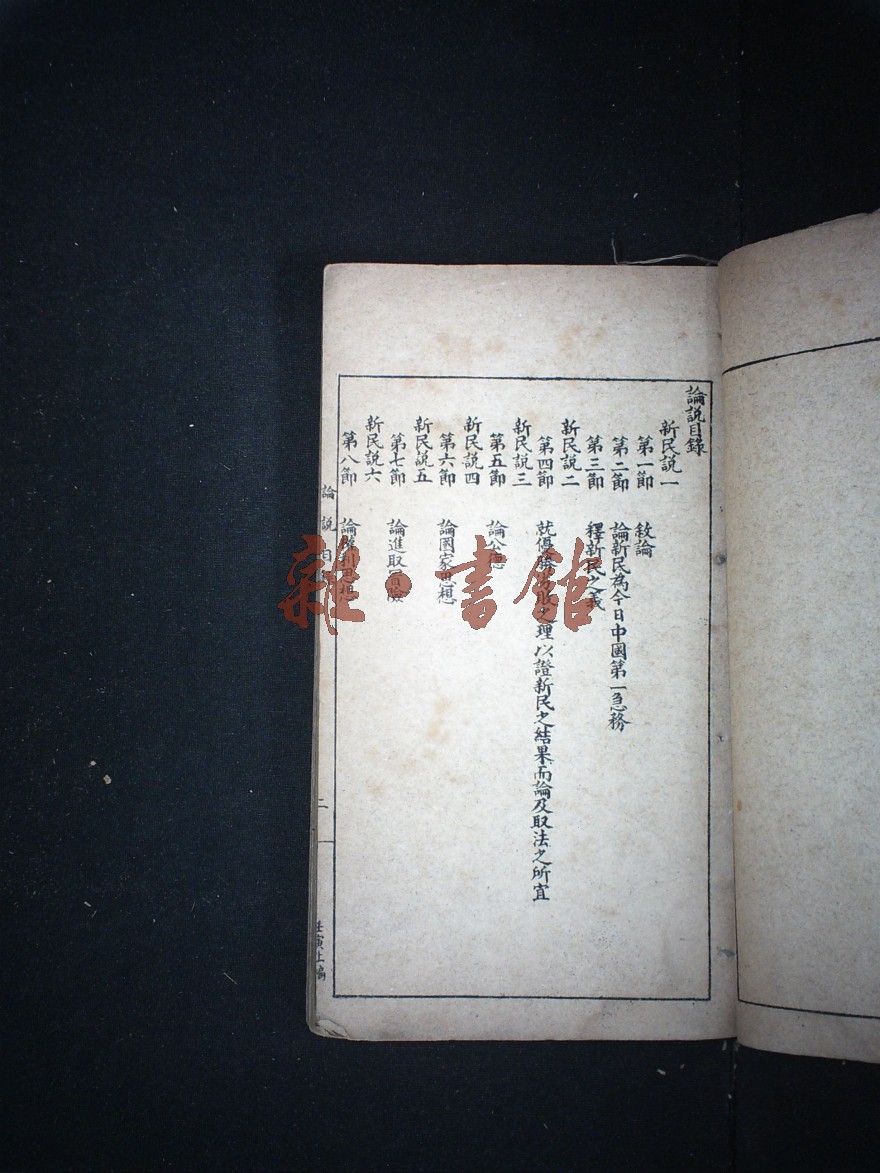 論說目錄
新民說一
第一節 敘論
第二節 論新民為今日中國第一急務
第三節 釋新民之義
新民說二
第四節 就優勝劣敗之理以證新民之結果而論及取法之所宜
新民說三
第五節 論公德
新民說四
第六節 論國家思想
新民說五
第七節 論進取冒險
新民說六
第八節 論權利思想
論說目
二
壬寅上編
雜·書館